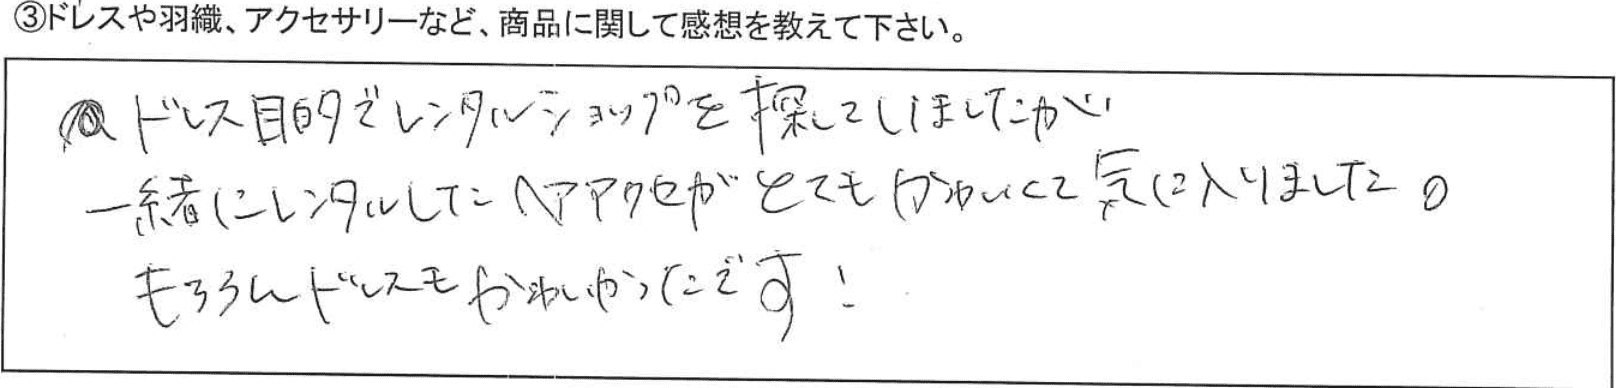 ③ドレスや羽織、アクセサリーなど、商品に関して感想を教えて下さい。
ドレス目的でレンタルショップを探していましたが
一緒にレンタルしたヘアアクセがとてもかわいくて気に入りました。
もちろんドレスもかわいかったです!